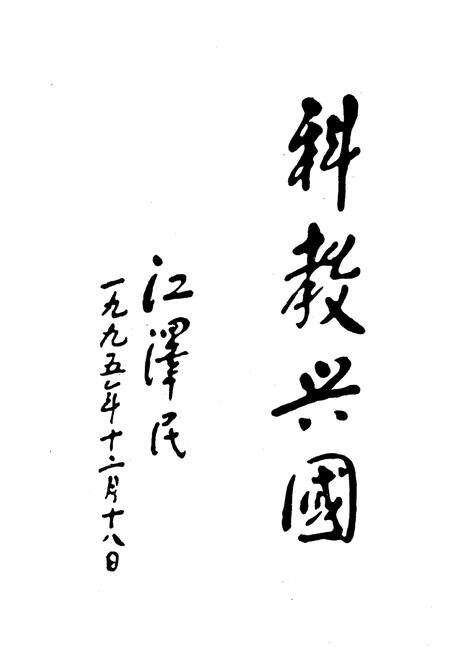 科教兴國
江澤民
一九九五年十二月十八日